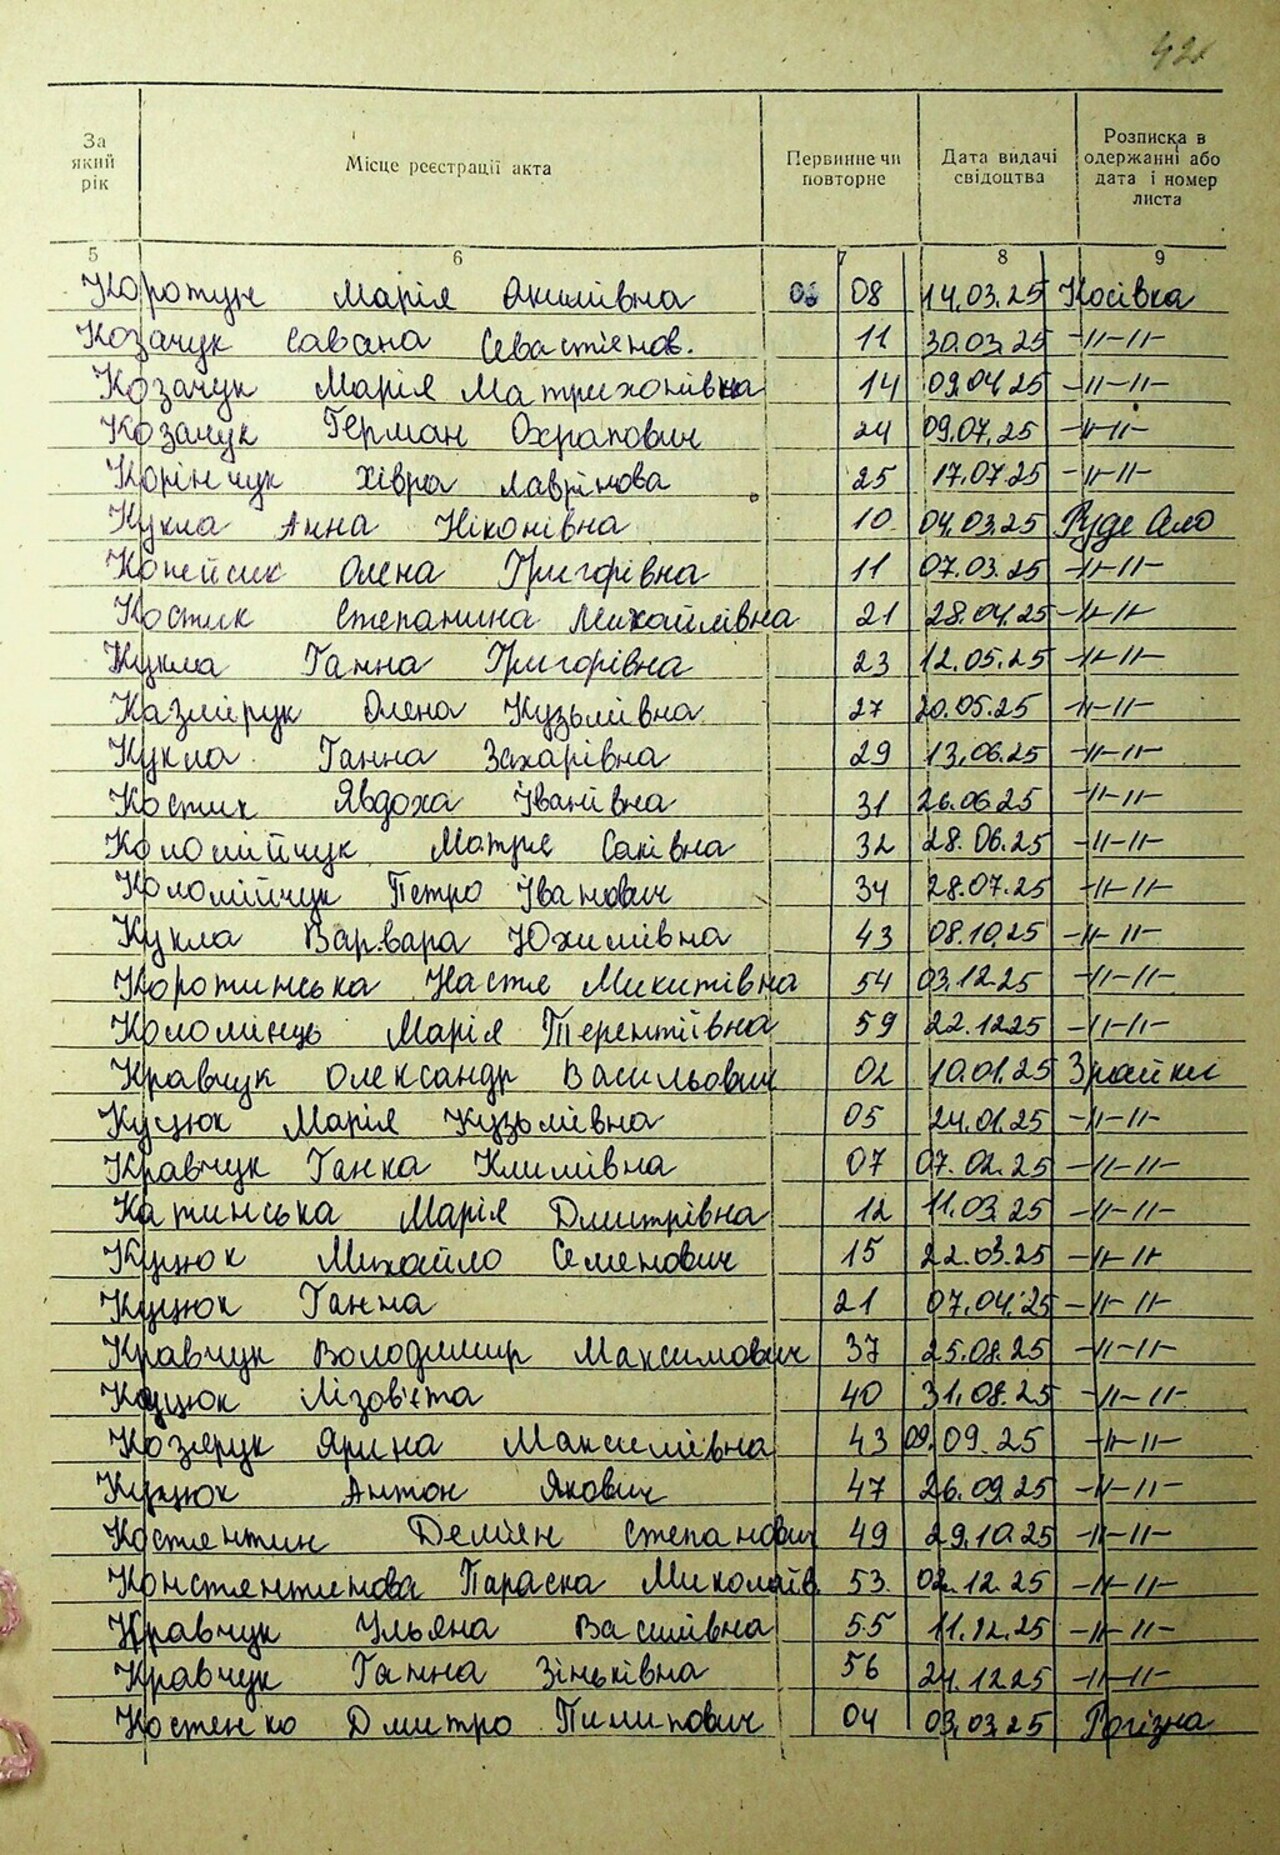 42
За який рік
Місце реєстрації акта
Первинне чи повторне
Дата видачі свідоцтва
Розписка в одержанні або дата і номер листа
5 6 7 8 9
Коротун Марія Якимівна 08 14.03.25 Косівка
Козачук Савана Севастіянов. 11 30.03.25 -//-//-
Козачук Марія Матрихонівна 14 09.04.25 -//-//-
Козачук Герман Охрапович 24 09.07.25 -//-//-
Корінчук Хівря Лаврінова 25 17.07.25 -//-//-
Кукла Анна Ніконівна 10 04.03.25 Руде Село
Копейсик Олена Григорівна 11 07.03.25 -//-//-
Костик Степанина Михайлівна 21 28.04.25 -//-//-
Кукла Ганна Григорівна 23 12.05.25 -//-//-
Казмірук Олена Кузьмівна 27 20.05.25 -//-//-
Кукла Ганна Захарівна 29 13.06.25 -//-//-
Костик Явдоха Іванівна 31 26.06.25 -//-//-
Коломійчук Матря Саківна 32 28.06.25 -//-//-
Коломійчук Петро Іванович 34 28.07.25 -//-//-
Кукла Варвара Юхимівна 43 08.10.25 -//-//-
Коротинська Настя Микитівна 54 03.12.25 -//-//-
Коломієць Марія Терентіївна 59 22.12.25 -//-//-
Кравчук Олександр Васильович 02 10.01.25 Зрайки
Куцюк Марія Кузьмівна 05 24.01.25 -//-//-
Кравчук Ганка Климівна 07 07.02.25 -//-//-
Катинська Марія Дмитрівна 12 11.03.25 -//-//-
Куцюк Михайло Семенович 15 22.03.25 -//-//-
Куцюк Ганна 21 07.04.25 -//-//-
Кравчук Володимир Максимович 37 25.08.25 -//-//-
Куцюк Лізов'єта 40 31.08.25 -//-//-
Козярук Ярина Максимівна 43 09.09.25 -//-//-
Куцюк Антон Якович 47 26.09.25 -//-//-
Костянтин Демян Степанович 49 29.10.25 -//-//-
Константинова Параска Миколаїв. 53 02.12.25 -//-//-
Кравчук Ульяна Василівна 55 11.12.25 -//-//-
Кравчук Ганна Зіньківна 56 24.12.25 -//-//-
Костенко Дмитро Пилипович 04 03.03.25 Рогізна